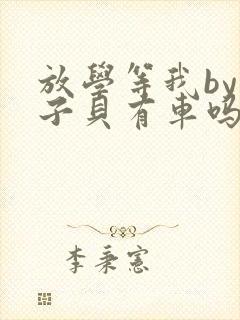 放學等我by
子貝有車嗎
李秉憲